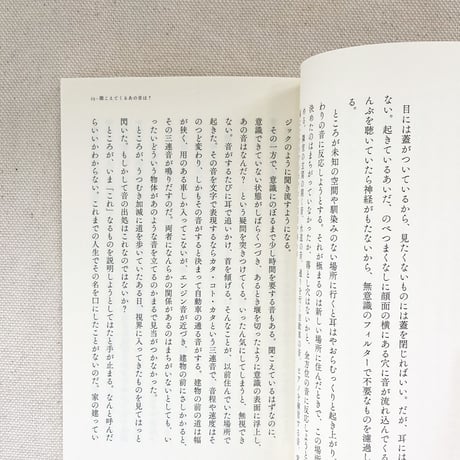 目には蓋がついているから、見たくないものには蓋を閉じればいい。だが、耳には
ない。起きているあいだ、のべつまくなしに顔面の横にある穴に音が流れ込んでくる
んぶを聴いていたら神経がもたないから、無意識のフィルターで不要なものを濾過し
る。
ところが未知の空間や馴染みのない場所に行くと耳はやおらむっくりと起き上がり、
わりの音に反応しようとする。それが極まるのは新しい場所に住んだときで、この場
決めたのはまちがっていなかったか、落とし穴はないかと、全方位の音に反応しよう
13・聞こえてくるあの音は？
ジックのように聞き流すようになる。
その一方で、意識にのぼるまで少し時間を要する音もある。聞こえているはずなのに、
意識できていない状態がしばらくつづき、あるとき堰を切ったように意識の表面に浮上し、
あの音はなんだ？ という疑問を突きつけてくる。いったん気にしてしまうと、無視でき
ない。音がするたびに耳で追いかけ、首を傾げる。そんなことが、以前住んでいた場所で
起きた。その音を文字で表現するならカタ・コト・カタという三連音で、音程や速度はそ
のつど変わり、しかもその音がすると決まって自動車の通る音がする。建物の前の道は幅
が狭く、用のある車しか入ってこない。エンジン音が近づき、建物の前にさしかかると、
その三連音が鳴りだすのだ。両者になんらかの関係があるのはまちがいないとしても、い
ったいどういう物体があのような音を立てるのかまるで見当がつかなかった。
ところが、うつむき加減に道を歩いていたある日、視界に入ってきたものを見てはっと
閃いた。もしかして音の出処はこれなのではないか？
ところが、いま「これ」なるものを説明しようとしてはたと手が止まる。なんと呼んだ
らいいかわからない。これまでの人生でその名を口にしたことがないのだ。家の建ってい